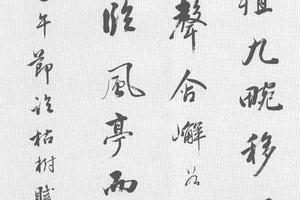 植九畹移
聲含嶰谷
臨風亭而
午節臨枯樹賦